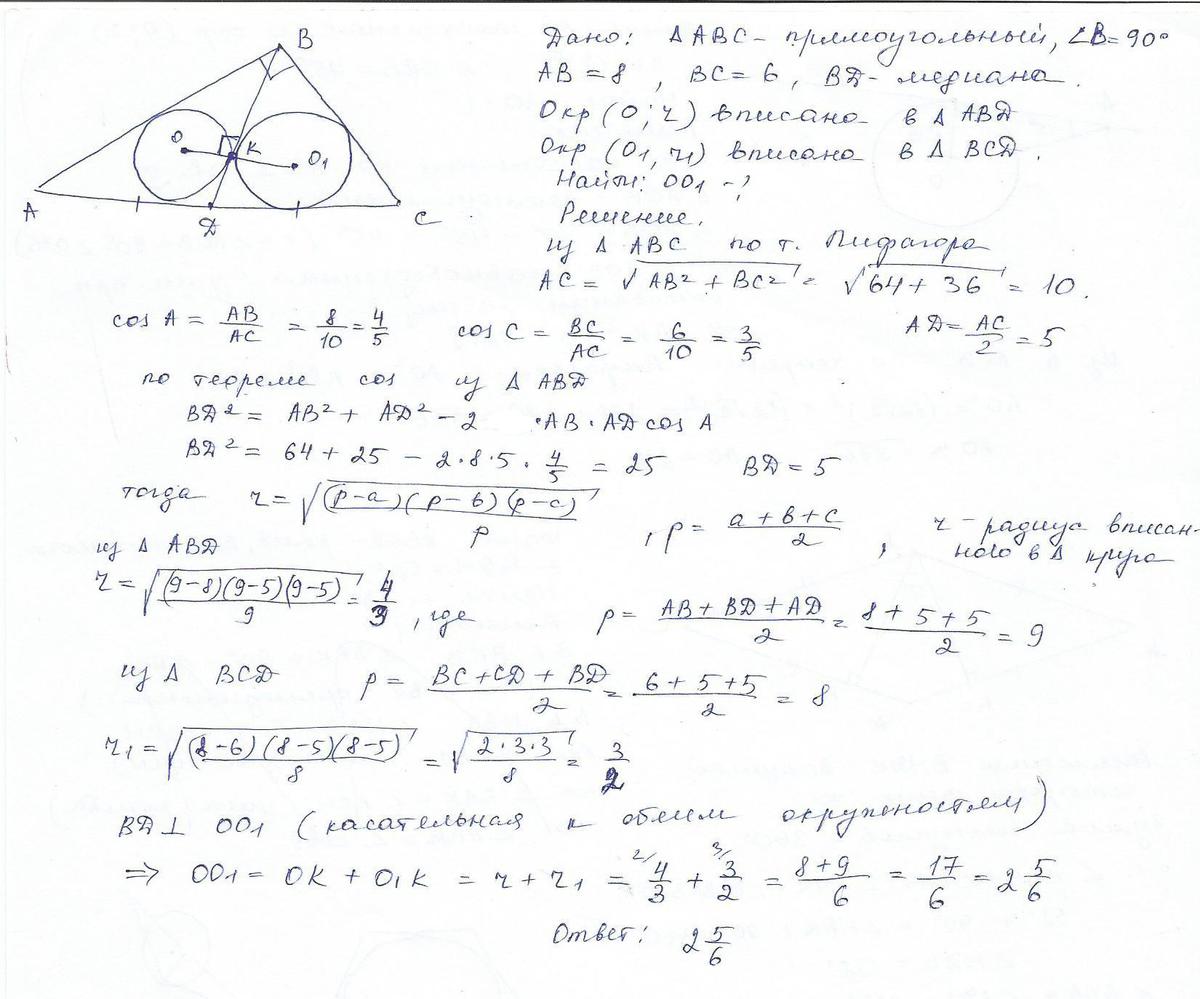 B
O
K
O₁
A
Д
C
Дано: Δ ABC - прямоугольный, ∠B = 90°
AB = 8, BC = 6, BД - медиана.
Окр (O; r) вписана в Δ ABД
Окр (O₁, r₁) вписано в Δ BCД.
Найти: OO₁ - ?
Решение.
из Δ ABC по т. Пифагора
AC = √(AB² + BC²) = √(64 + 36) = 10.
cos A = AB/AC = 8/10 = 4/5   cos C = BC/AC = 6/10 = 3/5   AД = AC/2 = 5
по теореме cos из Δ ABД
BД² = AB² + AД² - 2 · AB · AД cos A
BД² = 64 + 25 - 2·8·5 · 4/5 = 25   BД = 5
тогда r = √((p-a)(p-b)(p-c)/p), p = (a+b+c)/2, r - радиус вписан-
ного в Δ круга
из Δ ABД
r = √((9-8)(9-5)(9-5)/9) = 4/3, где p = (AB + BД + AД)/2 = (8+5+5)/2 = 9
из Δ BCД p = (BC + CД + BД)/2 = (6+5+5)/2 = 8
r₁ = √((8-6)(8-5)(8-5)/8) = √(2·3·3/8) = 3/2
BД ⊥ OO₁ (касательная к обеим окружностям)
⇒ OO₁ = OK + O₁K = r + r₁ = ²⁄4/3 + ³⁄3/2 = (8+9)/6 = 17/6 = 2 5/6
Ответ: 2 5/6